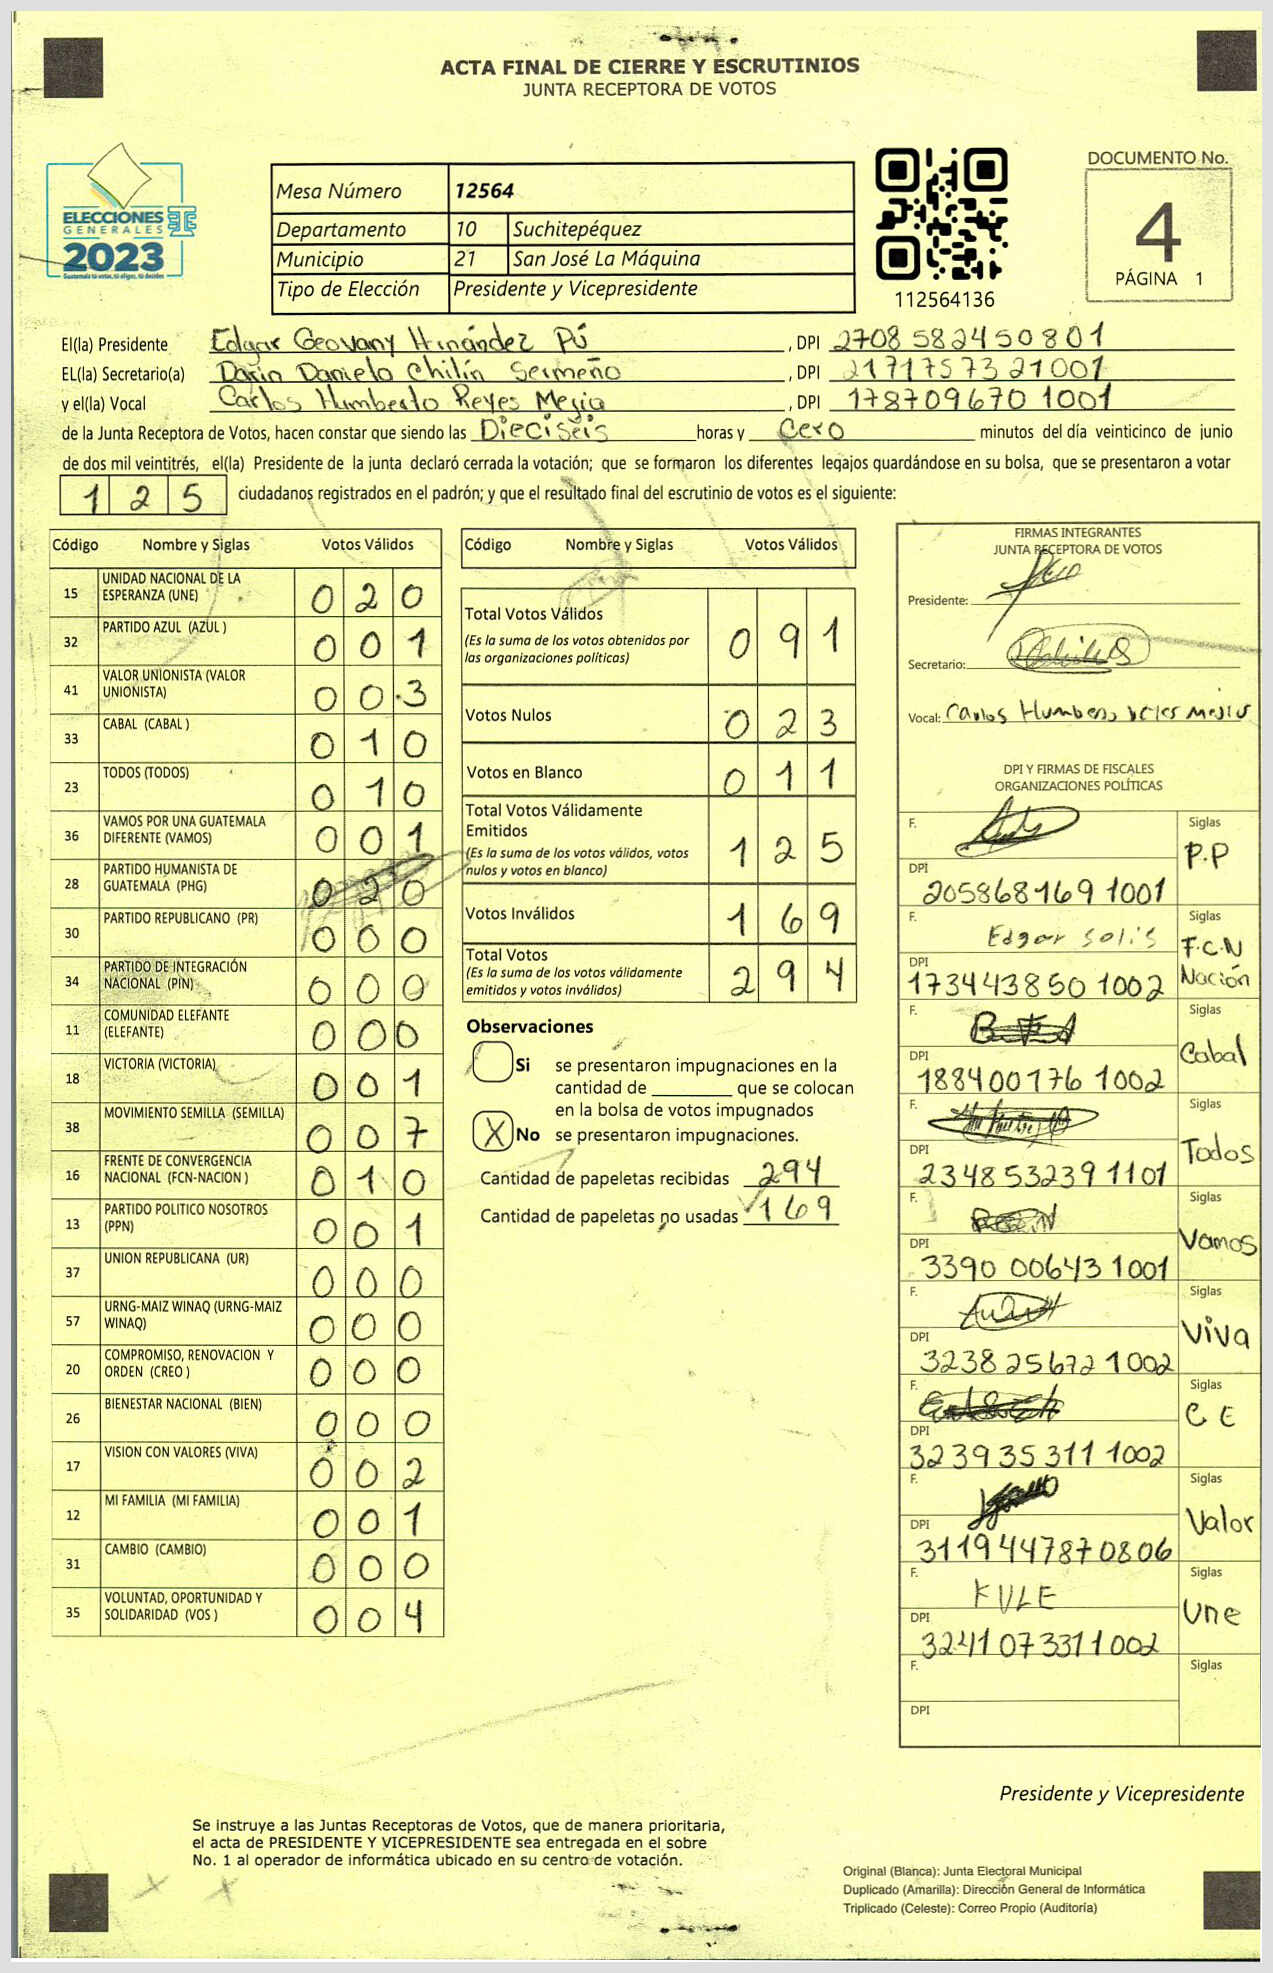 ACTA FINAL DE CIERRE Y ESCRUTINIOS
JUNTA RECEPTORA DE VOTOS
ELECCIONES
GENERALES
2023
Guatemala tú votas, tú eliges, tú decides
Mesa Número 12564
Departamento 10 Suchitepéquez
Municipio 21 San José La Máquina
Tipo de Elección Presidente y Vicepresidente
112564136
DOCUMENTO No.
4
PÁGINA 1
El(la) Presidente Edgar Geovany Hernández Pú, DPI 2708582450801
EL(la) Secretario(a) Darin Danielo Chilín Sermeño, DPI 2171757321001
y el(la) Vocal Carlos Humberto Reyes Mejia, DPI 1787096701001
de la Junta Receptora de Votos, hacen constar que siendo las Dieciseis horas y Cero minutos del día veinticinco de junio
de dos mil veintitrés, el(la) Presidente de la junta declaró cerrada la votación; que se formaron los diferentes legajos guardándose en su bolsa, que se presentaron a votar
125 ciudadanos registrados en el padrón; y que el resultado final del escrutinio de votos es el siguiente:
Código Nombre y Siglas Votos Válidos
15 UNIDAD NACIONAL DE LA ESPERANZA (UNE) 020
32 PARTIDO AZUL (AZUL ) 001
41 VALOR UNIONISTA (VALOR UNIONISTA) 003
33 CABAL (CABAL ) 010
23 TODOS (TODOS) 010
36 VAMOS POR UNA GUATEMALA DIFERENTE (VAMOS) 001
28 PARTIDO HUMANISTA DE GUATEMALA (PHG) 020
30 PARTIDO REPUBLICANO (PR) 000
34 PARTIDO DE INTEGRACIÓN NACIONAL (PIN) 000
11 COMUNIDAD ELEFANTE (ELEFANTE) 000
18 VICTORIA (VICTORIA) 001
38 MOVIMIENTO SEMILLA (SEMILLA) 007
16 FRENTE DE CONVERGENCIA NACIONAL (FCN-NACION ) 010
13 PARTIDO POLITICO NOSOTROS (PPN) 001
37 UNION REPUBLICANA (UR) 000
57 URNG-MAIZ WINAQ (URNG-MAIZ WINAQ) 000
20 COMPROMISO, RENOVACION Y ORDEN (CREO ) 000
26 BIENESTAR NACIONAL (BIEN) 000
17 VISION CON VALORES (VIVA) 002
12 MI FAMILIA (MI FAMILIA) 001
31 CAMBIO (CAMBIO) 000
35 VOLUNTAD, OPORTUNIDAD Y SOLIDARIDAD (VOS ) 004
Código Nombre y Siglas Votos Válidos
Total Votos Válidos 091
(Es la suma de los votos obtenidos por
las organizaciones políticas)
Votos Nulos 023
Votos en Blanco 011
Total Votos Válidamente
Emitidos 125
(Es la suma de los votos válidos, votos
nulos y votos en blanco)
Votos Inválidos 169
Total Votos 294
(Es la suma de los votos válidamente
emitidos y votos inválidos)
Observaciones
Si se presentaron impugnaciones en la
cantidad de ________ que se colocan
en la bolsa de votos impugnados
X No se presentaron impugnaciones.
Cantidad de papeletas recibidas 294
Cantidad de papeletas no usadas 169
FIRMAS INTEGRANTES
JUNTA RECEPTORA DE VOTOS
Presidente:
Secretario:
Vocal: Carlos Humberto Reyes Mejia
DPI Y FIRMAS DE FISCALES
ORGANIZACIONES POLÍTICAS
F. Siglas P.P
DPI 2058681691001
F. Edgar Solis Siglas F.C.N Nación
DPI 1734438501002
F. Siglas Cabal
DPI 1884001761002
F. Siglas Todos
DPI 2348532391101
F. Siglas Vamos
DPI 3390006431001
F. Siglas Viva
DPI 3238256721002
F. Siglas C E
DPI 3239353111002
F. Siglas Valor
DPI 3119447870806
F. Siglas Une
DPI 3241073311002
F. Siglas
DPI
Presidente y Vicepresidente
Se instruye a las Juntas Receptoras de Votos, que de manera prioritaria,
el acta de PRESIDENTE Y VICEPRESIDENTE sea entregada en el sobre
No. 1 al operador de informática ubicado en su centro de votación.
Original (Blanca): Junta Electoral Municipal
Duplicado (Amarilla): Dirección General de Informática
Triplicado (Celeste): Correo Propio (Auditoría)